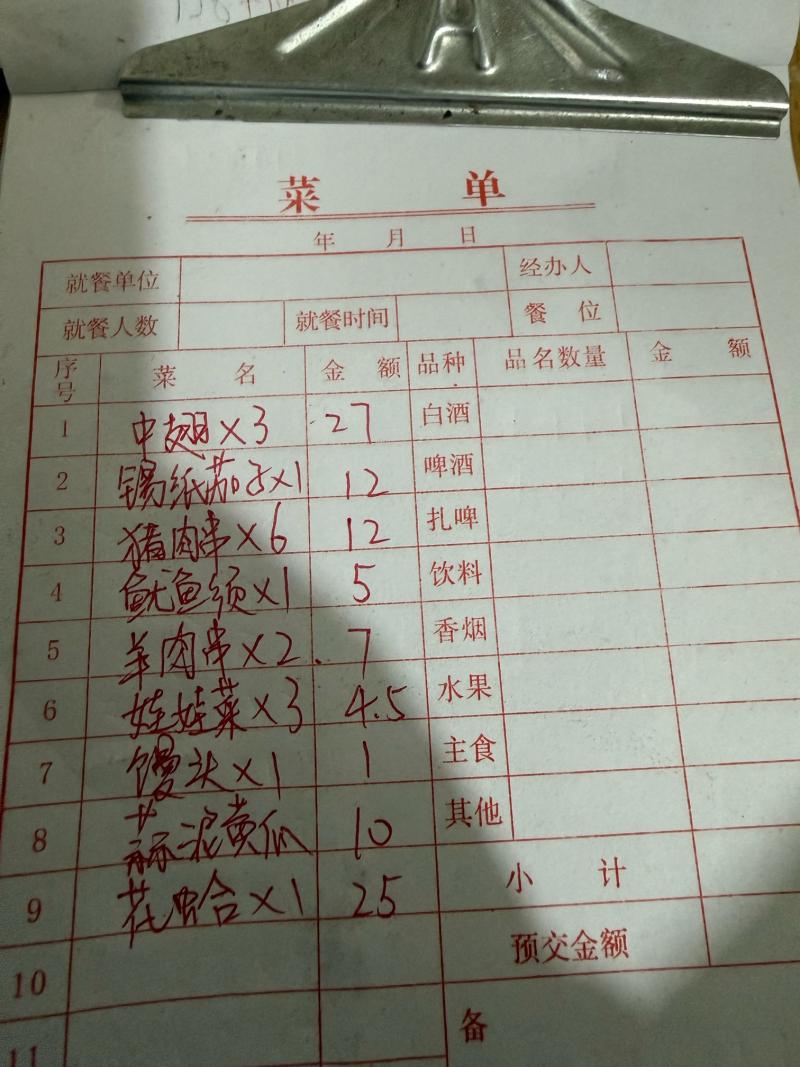 菜 单
年 月 日
就餐单位 经办人
就餐人数 就餐时间 餐 位
序号 菜 名 金 额 品种 品名数量 金 额
1 中翅×3 27 白酒
2 锡纸茄子×1 12 啤酒
3 猪肉串×6 12 扎啤
4 鱿鱼须×1 5 饮料
5 羊肉串×2 7 香烟
6 娃娃菜×3 4.5 水果
7 馒头×1 1 主食
8 蒜泥黄瓜 10 其他
9 花蛤×1 25 小 计
10 预交金额
11 备